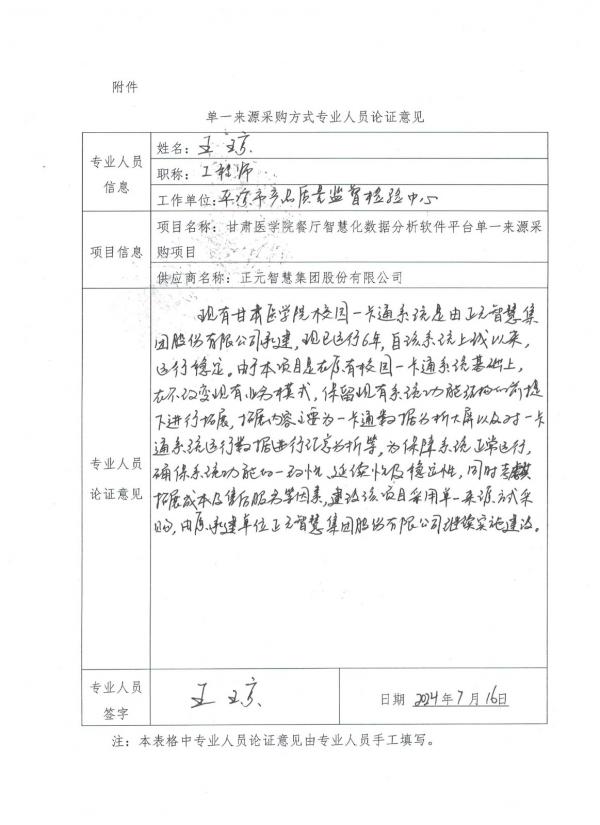 附件
单一来源采购方式专业人员论证意见
专业人员
信息
姓名：王
职称：工程师
工作单位：平凉市产品质量监督检验中心
项目信息
项目名称：甘肃医学院餐厅智慧化数据分析软件平台单一来源采
购项目
供应商名称：正元智慧集团股份有限公司
专业人员
论证意见
现有甘肃医学院校园一卡通系统是由正元智慧集
团股份有限公司承建，现已运行6年，自该系统上线以来，
运行稳定。由于本项目是在原有校园一卡通系统基础上，
在不改变现有业务模式，保留现有系统功能结构的前提
下进行拓展，拓展内容主要为一卡通数据分析大屏以及对一卡
通系统运行数据进行汇总分析等，为保障系统正常运行，
确保系统功能的一致性、延续性及稳定性，同时
拓展成本及售后服务等因素，建议该项目采用单一来源方式采
购，由原承建单位正元智慧集团股份有限公司继续实施建设。
专业人员
签字
王
日期 2024年7月16日
注：本表格中专业人员论证意见由专业人员手工填写。